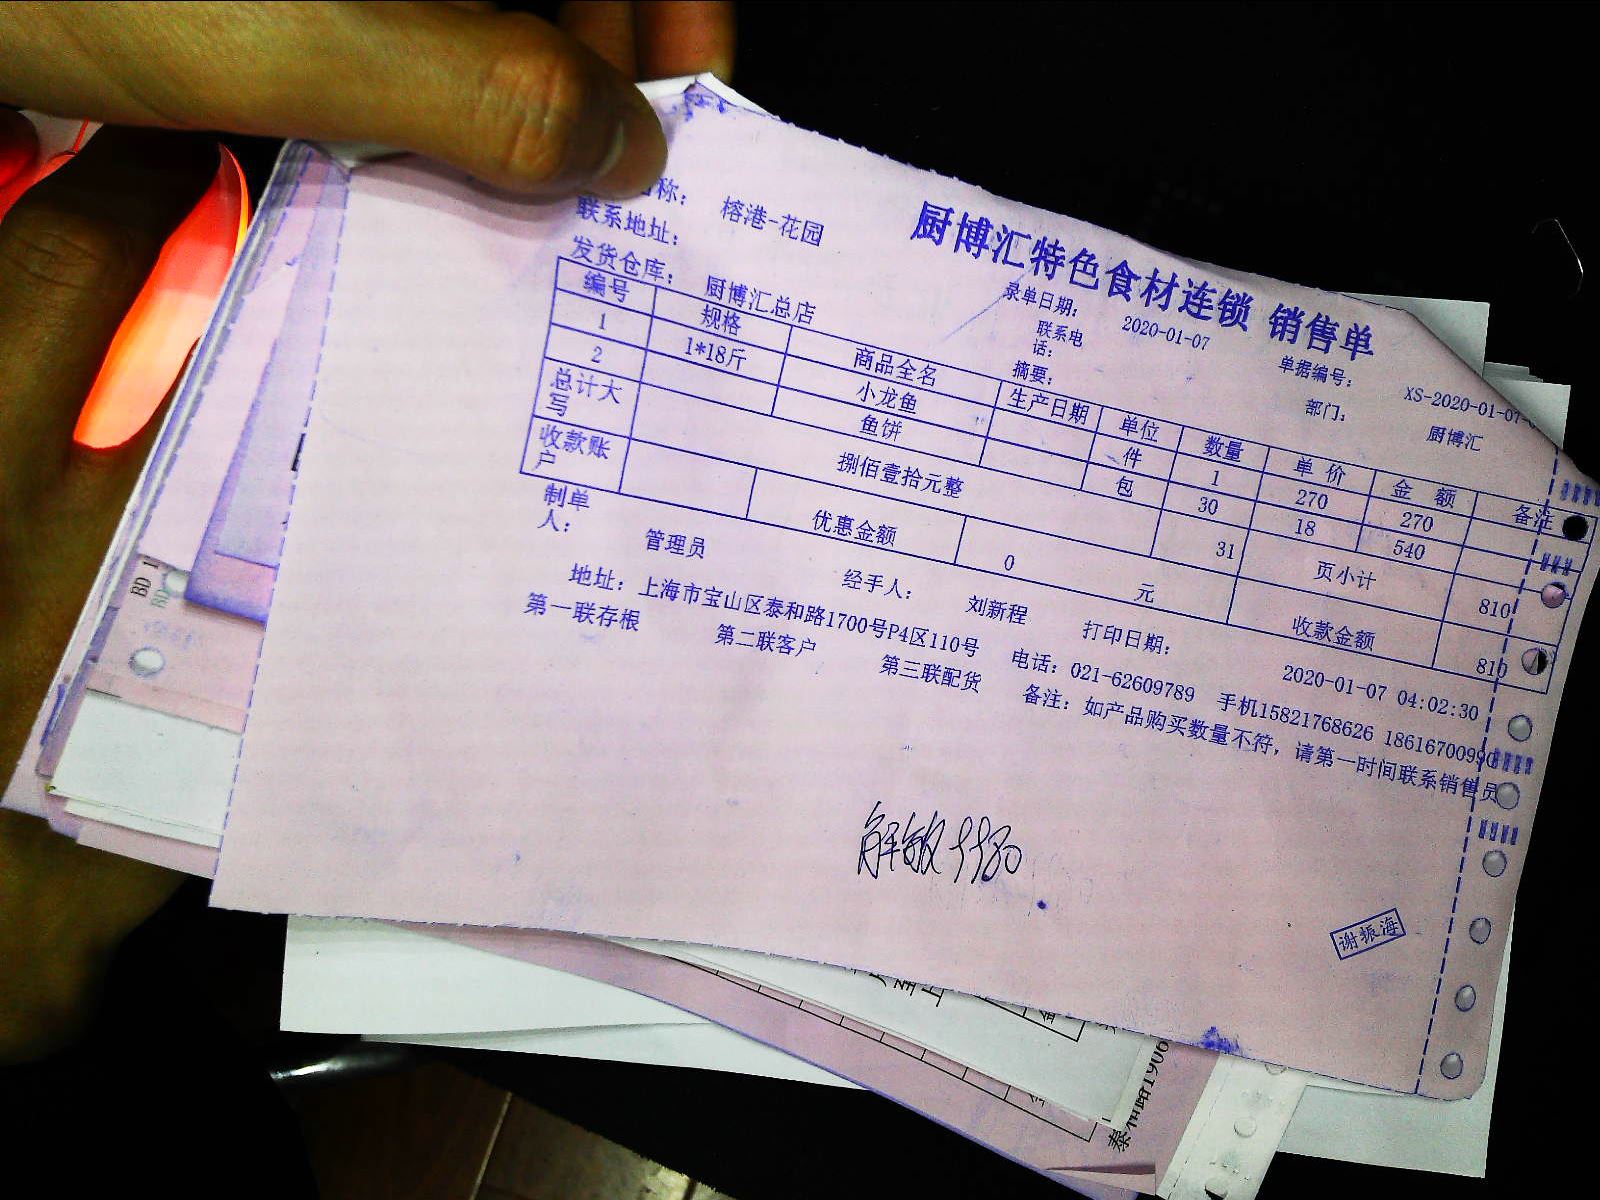 厨博汇特色食材连锁 销售单
称： 榕港-花园
录单日期： 2020-01-07
单据编号： XS-2020-01-07-
联系地址：
联系电话：
部门： 厨博汇
发货仓库： 厨博汇总店
摘要：
编号 规格 商品全名 生产日期 单位 数量 单价 金额 备注
1 1*18斤 小龙鱼 件 1 270 270
2 鱼饼 包 30 18 540
总计大写 捌佰壹拾元整 31 页小计 810
收款账户 优惠金额 0 元 收款金额 810
制单人： 管理员 经手人： 刘新程 打印日期： 2020-01-07 04:02:30
地址：上海市宝山区泰和路1700号P4区110号 电话：021-62609789 手机15821768626 18616700990
第一联存根 第二联客户 第三联配货 备注：如产品购买数量不符，请第一时间联系销售员
谢振海
BD 1